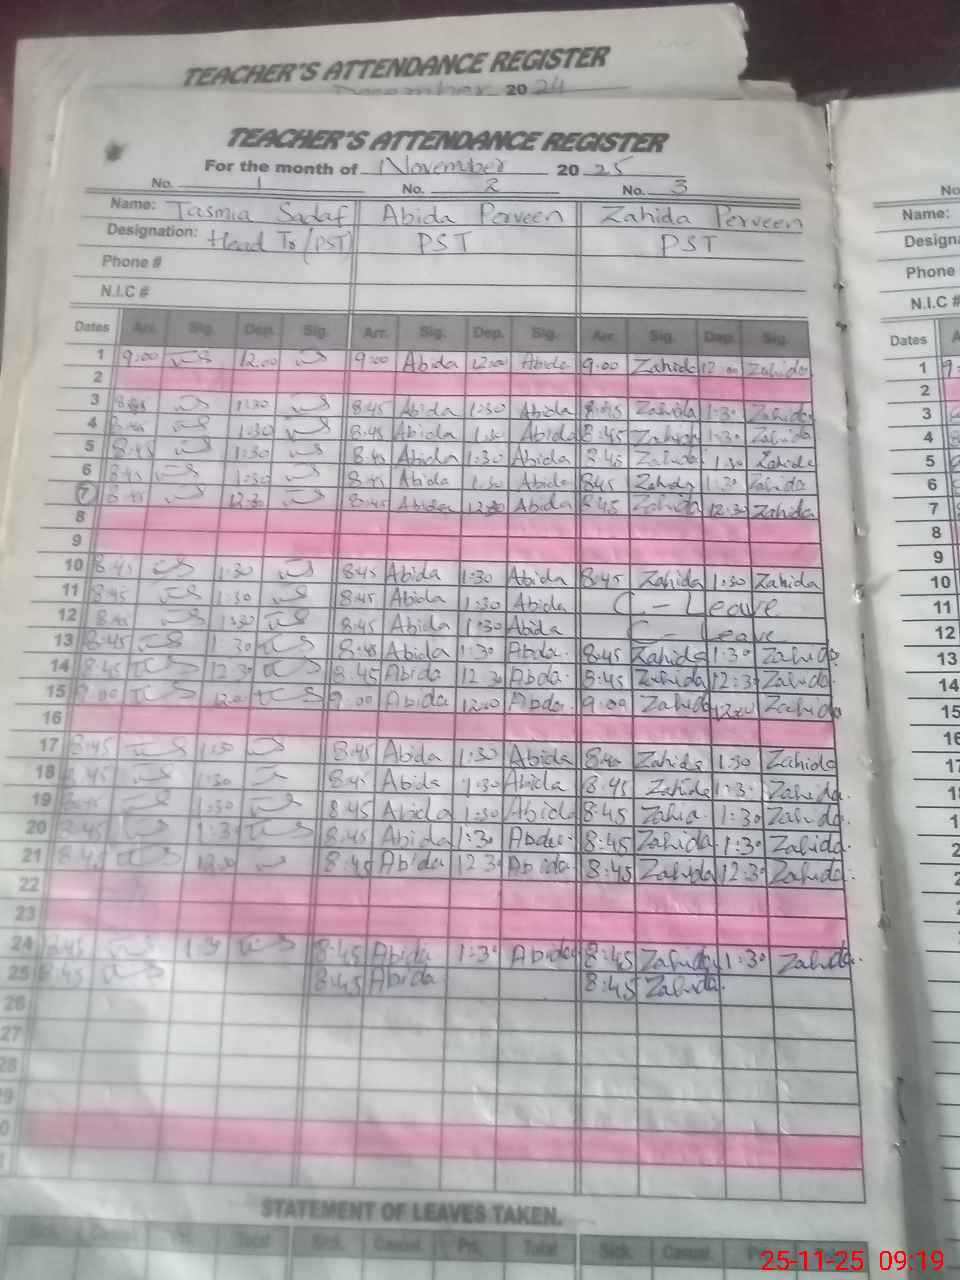 TEACHER'S ATTENDANCE REGISTER
December 2024
TEACHER'S ATTENDANCE REGISTER
For the month of November 2025
No. 1 No. 2 No. 3 No
Name: Tasmia Sadaf Abida Perveen Zahida Perveen Name:
Designation: Head Tr (PST) PST PST Designa
Phone # Phone
N.I.C # N.I.C #
Dates Arr. Sig. Dep. Sig. Arr. Sig. Dep. Sig. Arr. Sig. Dep. Sig. Dates A
1 9:00 12:00 9:00 Abida 12:00 Abida 9:00 Zahida 12:00 Zahida 1
2 2
3 8:45 1:30 8:45 Abida 1:30 Abida 8:45 Zahida 1:30 Zahida 3
4 8:45 1:30 8:45 Abida 1:30 Abida 8:45 Zahida 1:30 Zahida 4
5 8:45 1:30 8:45 Abida 1:30 Abida 8:45 Zahida 1:30 Zahida 5
6 8:45 1:30 8:45 Abida 1:30 Abida 8:45 Zahida 1:30 Zahida 6
7 8:45 12:30 8:45 Abida 12:30 Abida 8:45 Zahida 12:30 Zahida 7
8 8
9 9
10 8:45 1:30 8:45 Abida 1:30 Abida 8:45 Zahida 1:30 Zahida 10
11 8:45 1:30 8:45 Abida 1:30 Abida C - Leave 11
12 8:45 1:30 8:45 Abida 1:30 Abida C - Leave 12
13 8:45 1:30 8:45 Abida 1:30 Abida. 8:45 Zahida 1:30 Zahida. 13
14 8:45 12:30 8:45 Abida 12:30 Abida. 8:45 Zahida 12:30 Zahida. 14
15 9:00 12:00 9:00 Abida 12:00 Abida. 9:00 Zahida 12:00 Zahida 15
16 16
17 8:45 1:30 8:45 Abida 1:30 Abida 8:45 Zahida 1:30 Zahida 17
18 8:45 1:30 8:45 Abida 1:30 Abida 8:45 Zahida 1:30 Zahida. 18
19 8:45 1:30 8:45 Abida 1:30 Abida 8:45 Zahida 1:30 Zahida. 1
20 8:45 1:30 8:45 Abida 1:30 Abida. 8:45 Zahida 1:30 Zahida. 2
21 8:45 12:30 8:45 Abida 12:30 Abida 8:45 Zahida 12:30 Zahida. 2
22
23
24 8:45 1:30 8:45 Abida 1:30 Abida 8:45 Zahida 1:30 Zahida.
25 8:45 8:45 Abida 8:45 Zahida.
26
27
28
29
0
STATEMENT OF LEAVES TAKEN.
Sick. Casual. Pri. Total Sick. Casual. Pri. Total Sick. Casual.
25-11-25 09:19